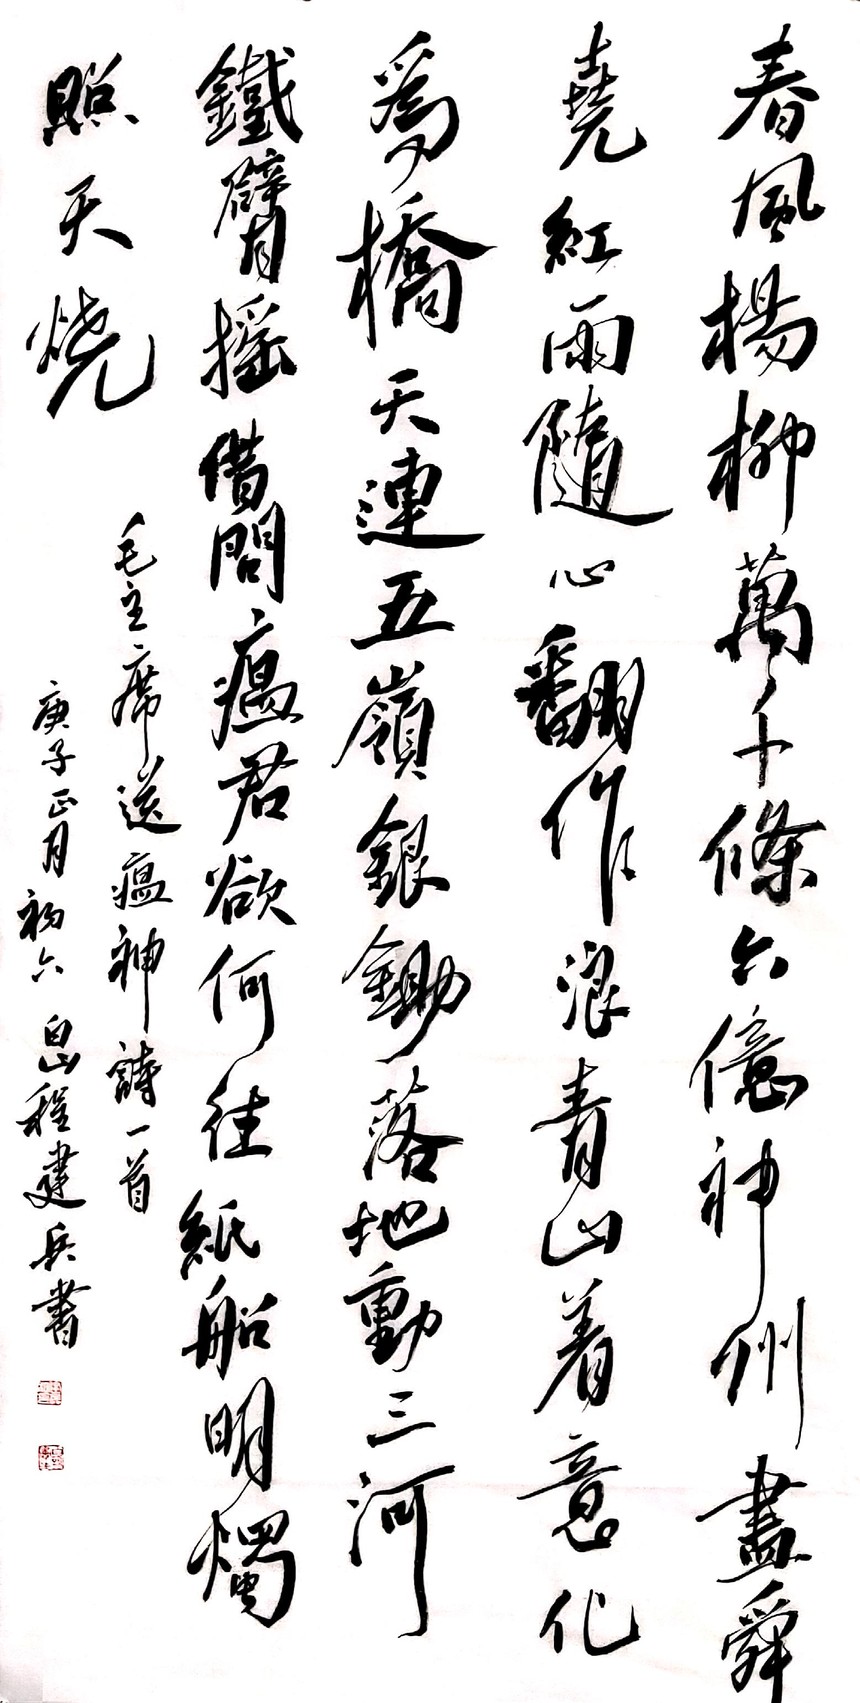 春風楊柳萬千條六億神州盡舜
堯紅雨隨心翻作浪青山着意化
爲橋天連五嶺銀鋤落地動三河
鐵臂摇借問瘟君欲何往紙船明燭
照天燒
毛主席送瘟神詩一首
庚子正月初六 程建兵書